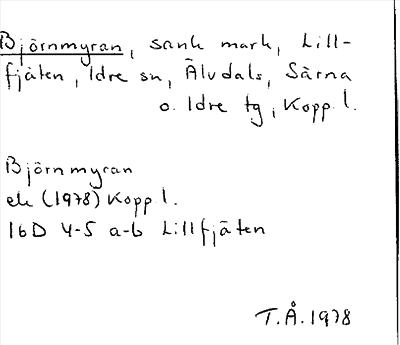 Björnmyran, sank mark, Lill-
fjäten, Idre sn, Älvdals, Särna
o. Idre tg, Kopp. l.
Björnmyran
ek (1978) Kopp l.
16D 4-5 a-b Lillfjäten
T.Å. 1978